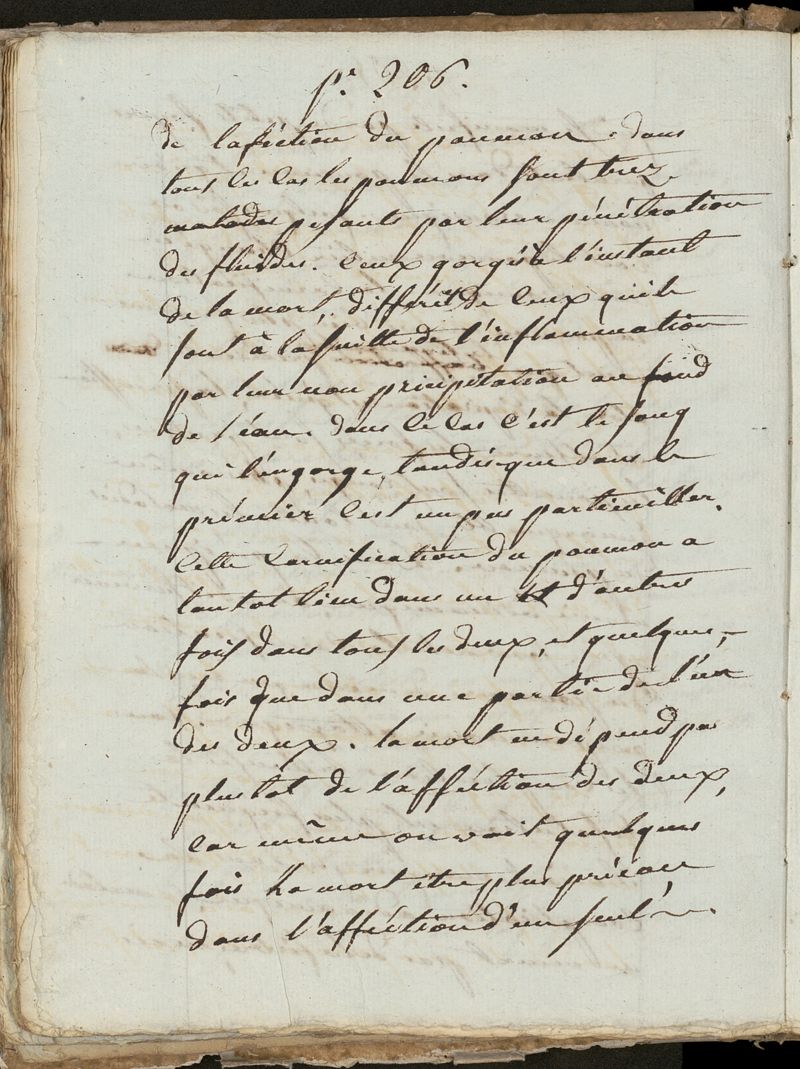 pe. 206.
de lafféction du poumon. dans
tous les cas les poumons sont trez
malades pesants par leur pénétration
des fluides. ceux gorgés à l'instant
de la mort, différent de ceux qui le
sont à la suitte de l'inflammation
par leur non précipitation au fond
de l'eau. dans ce cas c'est le sang
qui l'engorge, tandis que dans le
prémier c'est un pus particuiller.
Cette carnification du poumon a
tantot lieu dans un d'autres
fois dans tous les deux, et quelque-
fois que dans une partie de l'un
des deux. la mort ne dépend pas
plustot de l'afféction des deux,
car même on voit quelques
fois la mort être plus précoce
dans l'afféction d'un seul.